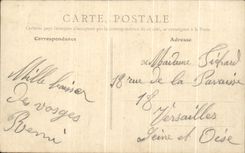 CARTE POSTALE
Correspondance
Adresse
Mille baisers
des vosges
Remi
Madame
18 rue de la Paroisse
18
Versailles
Seine et Oise